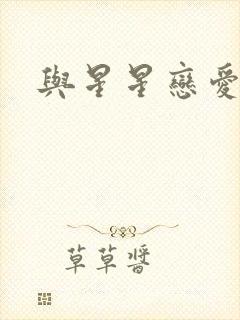 與星星戀愛
草草醬